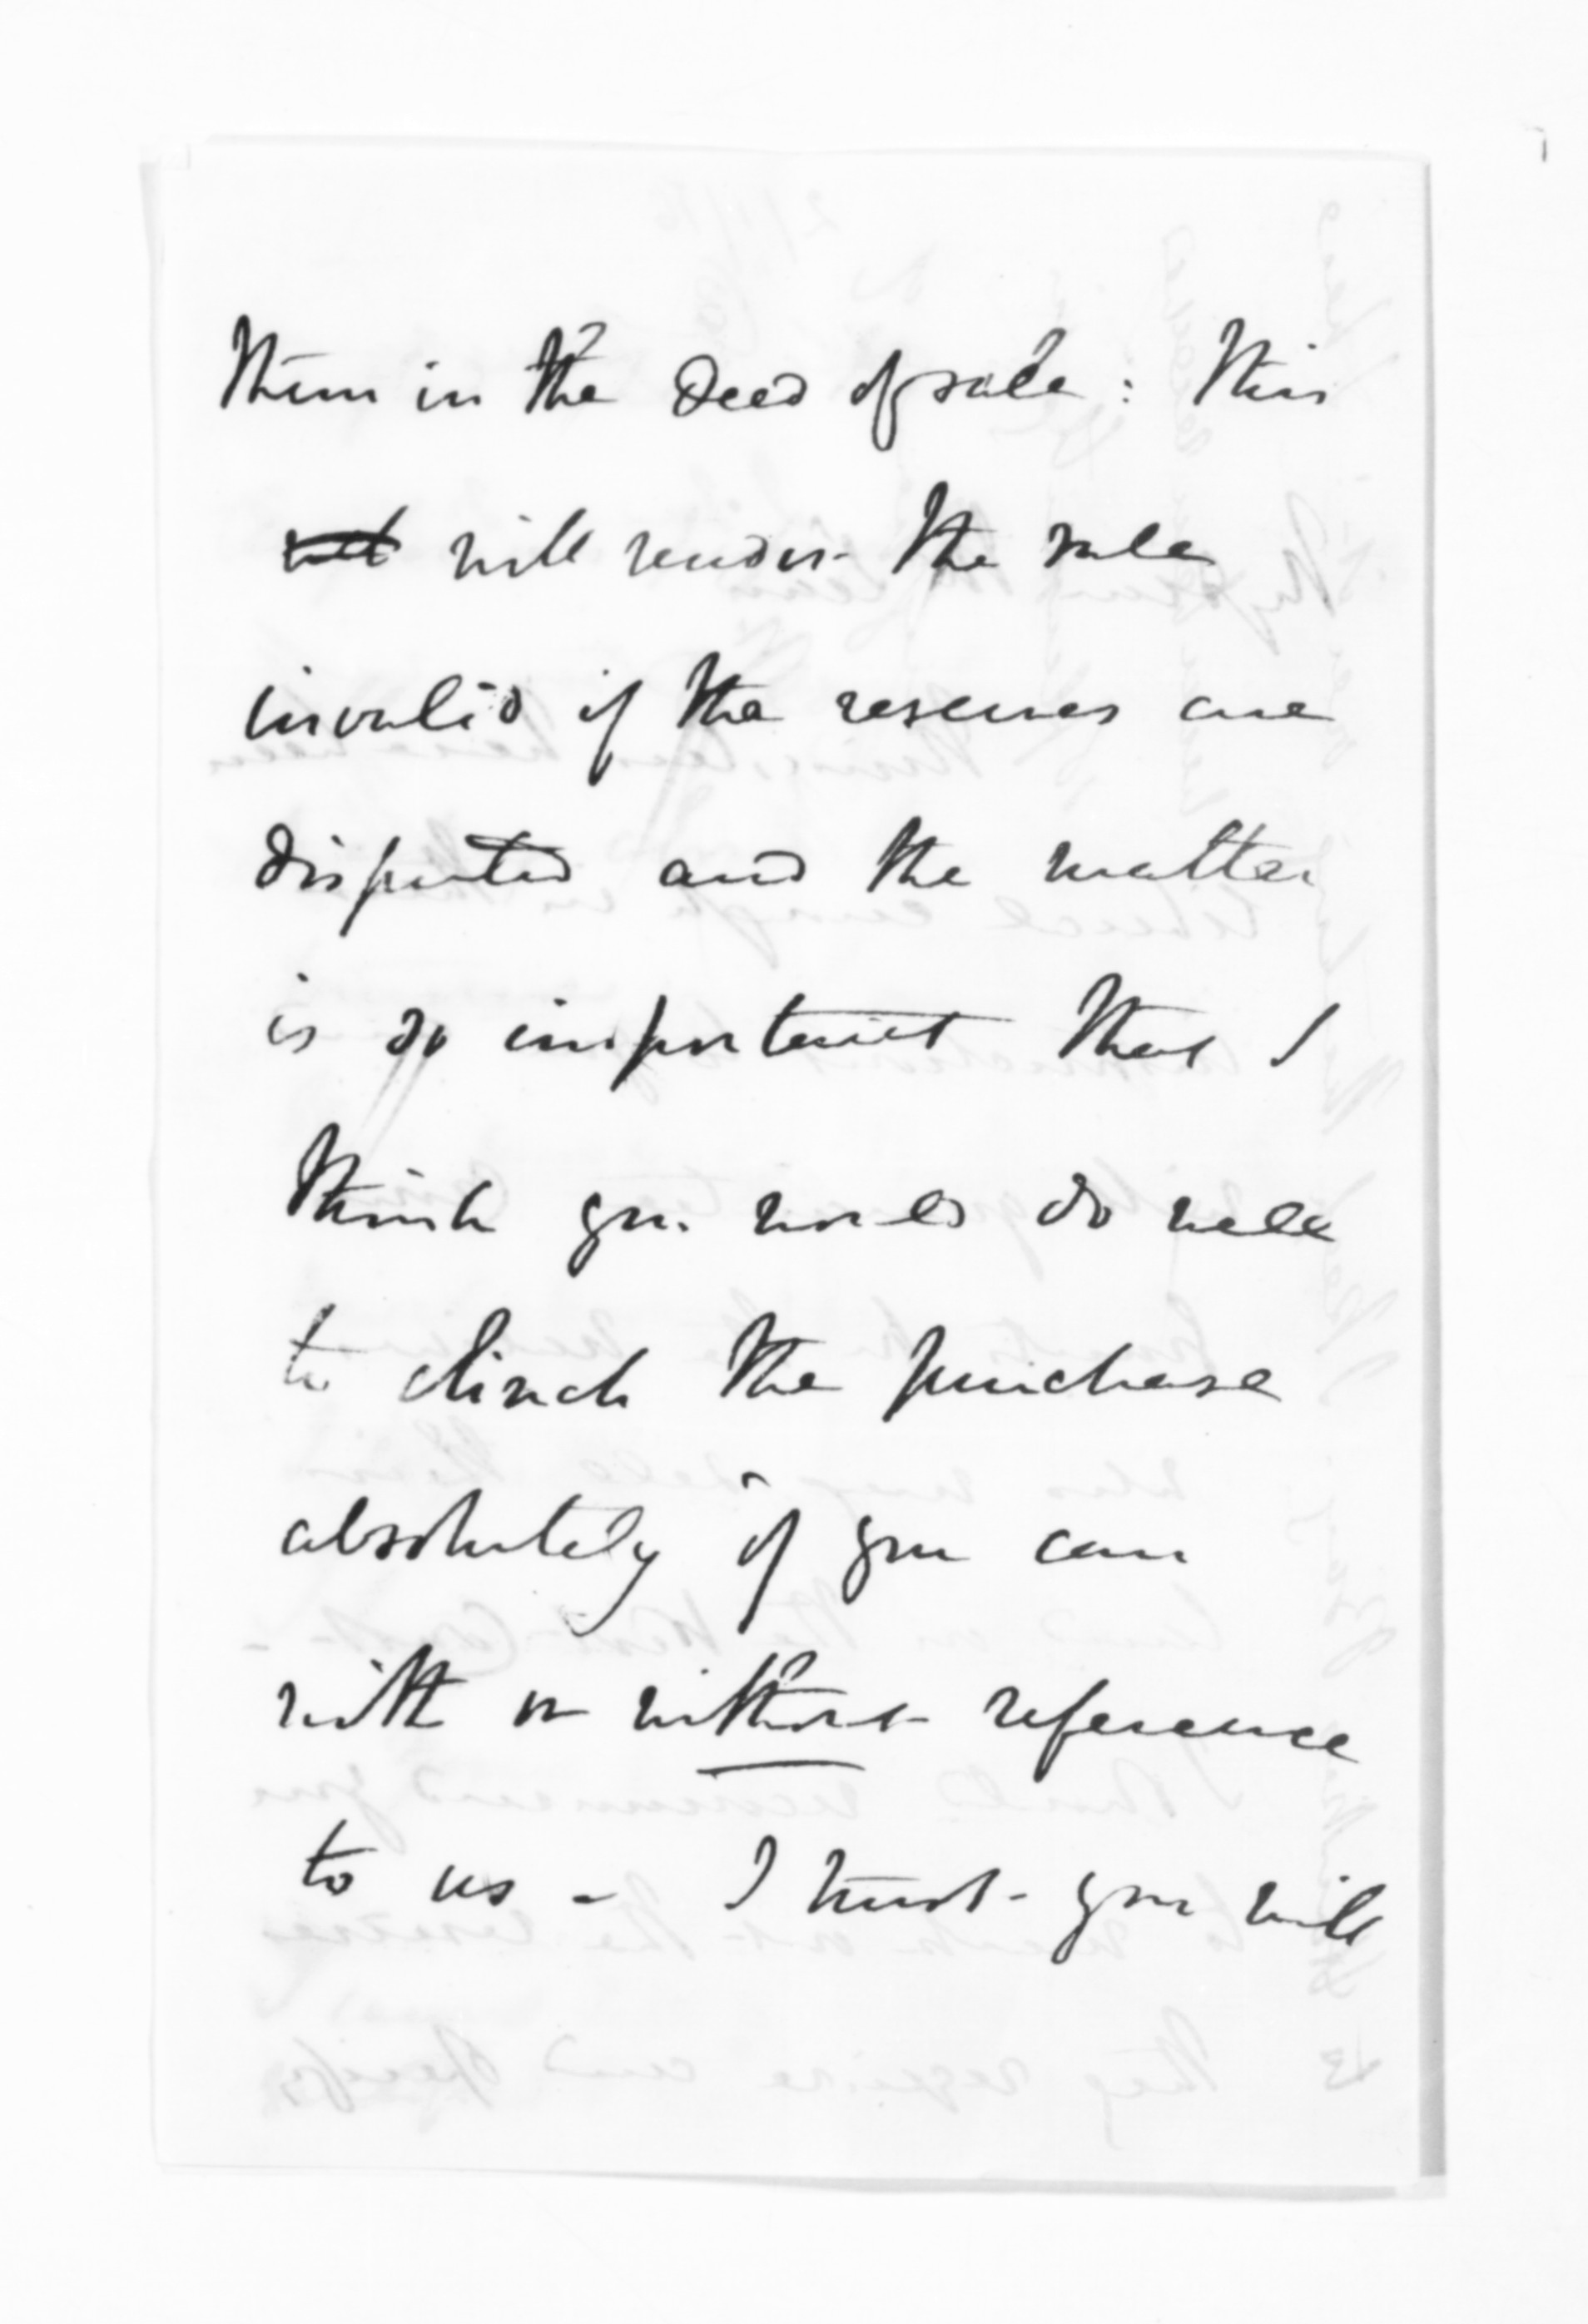 them in the Deed of sale: this
will render the sale
invalid if the reserves are
disputed and the matter
is so important that I
think you would do well
to clinch the purchase
absolutely if you can
with or without reference
to us - I trust you will